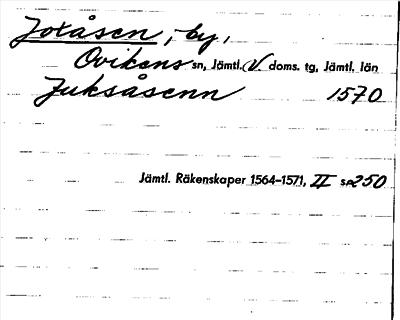 Joxåsen, by,
Ovikens sn, Jämtl. V. doms. tg, Jämtl. län
Juksåsenn 1570
Jämtl. Räkenskaper 1564–1571, II s. 250